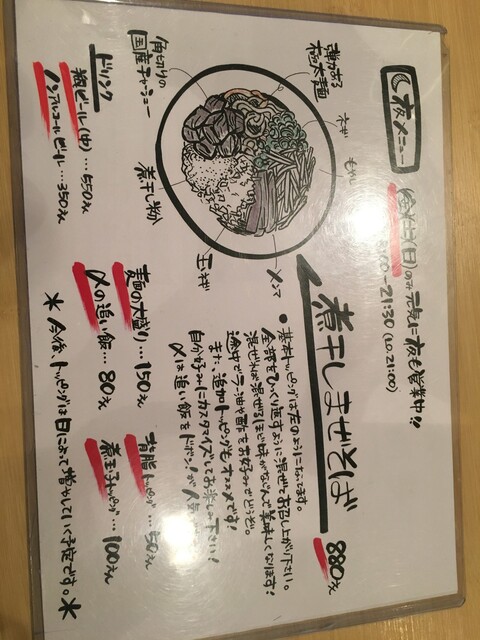 夜メニュー
金土日(日)のみ元気に夜も営業中!!
00~21:30(L.O.21:00)
煮干しまぜそば
880えん
弾力ある
極太麺
ネギ
もやし
メンマ
玉ネギ
煮干し粉
角切りの
国産チャーシュー
●基本トッピングは左のようになってます。
全部をひっくり返すように混ぜてお召し上がり下さい。
混ぜれば混ぜるほど味がなじんで美味しくなります!
途中でラー油や酢をお好みでどうぞ。
また、追加トッピングもオススメです!
自分好みにカスタマイズしてお楽しみ下さい!
〆は追い飯をドボン!が人気
ドリンク
瓶ビール(中)…550えん
ノンアルコールビール…350えん
麺の大盛り…150えん
〆の追い飯…80えん
背脂トッピング…50えん
煮玉子トッピング…100えん
*今後、トッピングは日によって増やしていく予定です。*